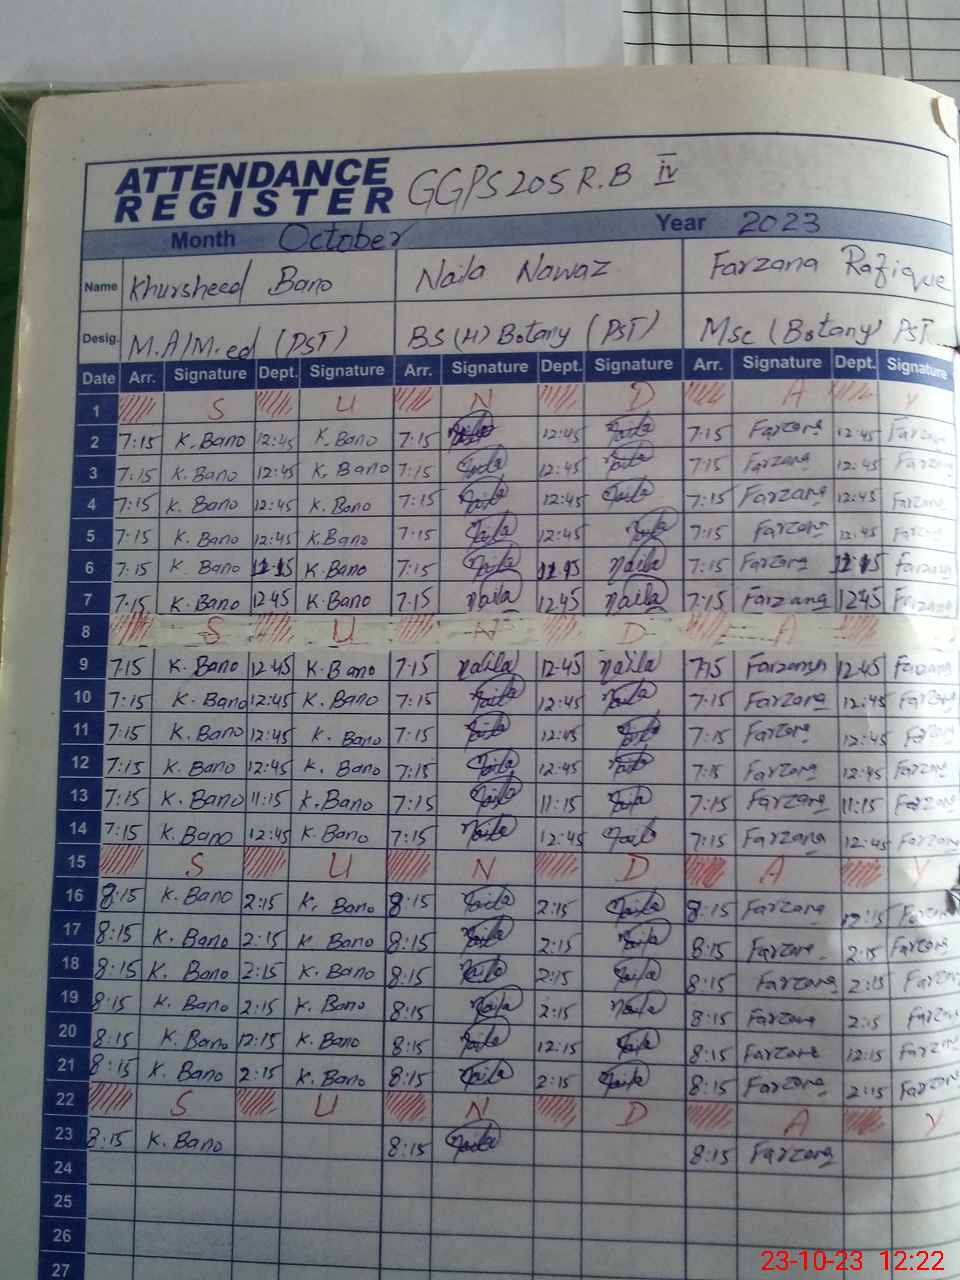 ATTENDANCE REGISTER GGPS 205 R.B iv
Month October Year 2023
Name Khursheed Bano Naila Nawaz Farzana Rafique
Desig. M.A/M.ed (PST) BS (H) Botany (PST) Msc (Botany) PST
Date Arr. Signature Dept. Signature Arr. Signature Dept. Signature Arr. Signature Dept. Signature
1 S U N D A Y
2 7:15 K. Bano 12:45 K. Bano 7:15 12:45 Naila 7:15 Farzana 12:45 Farzana
3 7:15 K. Bano 12:45 K. Bano 7:15 Naila 12:45 Naila 7:15 Farzana 12:45 Farzana
4 7:15 K. Bano 12:45 K. Bano 7:15 Naila 12:45 Naila 7:15 Farzana 12:45 Farzana
5 7:15 K. Bano 12:45 K. Bano 7:15 Naila 12:45 Naila 7:15 Farzana 12:45 Farzana
6 7:15 K. Bano K. Bano 7:15 Naila Naila 7:15 Farzana Farzana
7 7:15 K. Bano 12:45 K. Bano 7:15 Naila 12:45 Naila 7:15 Farzana 12:45 Farzana
8 S U N D A
9 7:15 K. Bano 12:45 K. Bano 7:15 Naila 12:45 Naila 7:15 Farzana 12:45 Farzana
10 7:15 K. Bano 12:45 K. Bano 7:15 Naila 12:45 Naila 7:15 Farzana 12:45 Farzana
11 7:15 K. Bano 12:45 K. Bano 7:15 Naila 12:45 Naila 7:15 Farzana 12:45 Farzana
12 7:15 K. Bano 12:45 K. Bano 7:15 Naila 12:45 Naila 7:15 Farzana 12:45 Farzana
13 7:15 K. Bano 11:15 K. Bano 7:15 Naila 11:15 Naila 7:15 Farzana 11:15 Farzana
14 7:15 K. Bano 12:45 K. Bano 7:15 Naila 12:45 Naila 7:15 Farzana 12:45 Farzana
15 S U N D A Y
16 8:15 K. Bano 2:15 K. Bano 8:15 Naila 2:15 Naila 8:15 Farzana Farzana
17 8:15 K. Bano 2:15 K Bano 8:15 Naila 2:15 Naila 8:15 Farzana 2:15 Farzana
18 8:15 K. Bano 2:15 K. Bano 8:15 Naila 2:15 Naila 8:15 Farzana 2:15 Farzana
19 8:15 K. Bano 2:15 K. Bano 8:15 Naila 2:15 Naila 8:15 Farzana 2:15 Farzana
20 8:15 K. Bano 12:15 K. Bano 8:15 Naila 12:15 Naila 8:15 Farzana 12:15 Farzana
21 8:15 K. Bano 2:15 K. Bano 8:15 Naila 2:15 Naila 8:15 Farzana 2:15 Farzana
22 S U N D A Y
23 8:15 K. Bano 8:15 Naila 8:15 Farzana
24
25
26
27
23-10-23 12:22